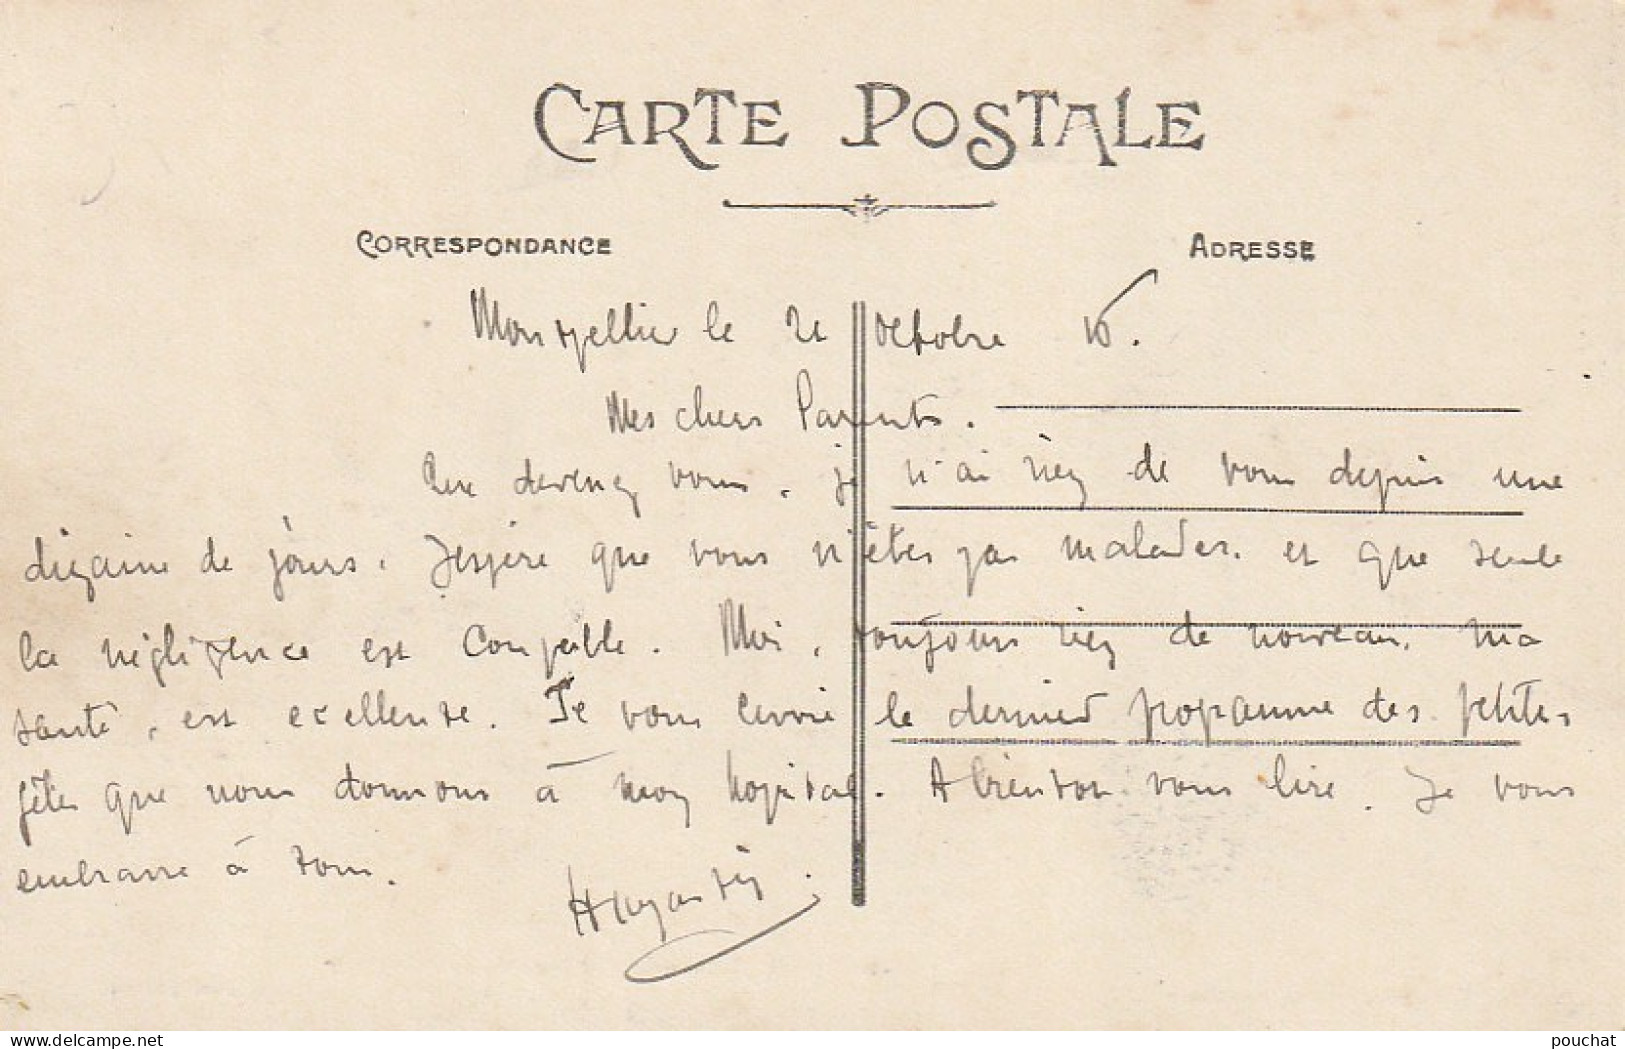 CARTE POSTALE
CORRESPONDANCE
ADRESSE
Montpellier le 21 octobre 16.
Mes chers Parents.
Que devenez vous. je n'ai rien de vous depuis une
dizaine de jours. J'espère que vous n'êtes pas malades. et que seule
la négligence est coupable. Moi, toujours rien de nouveau. Ma
santé, est excellente. Je vous envoie le dernier programme des petites
fêtes que nous donnons à mon hopital. A bientot vous lire. Je vous
embrasse à tous.
Augustin.
delcampe.net
pouchat